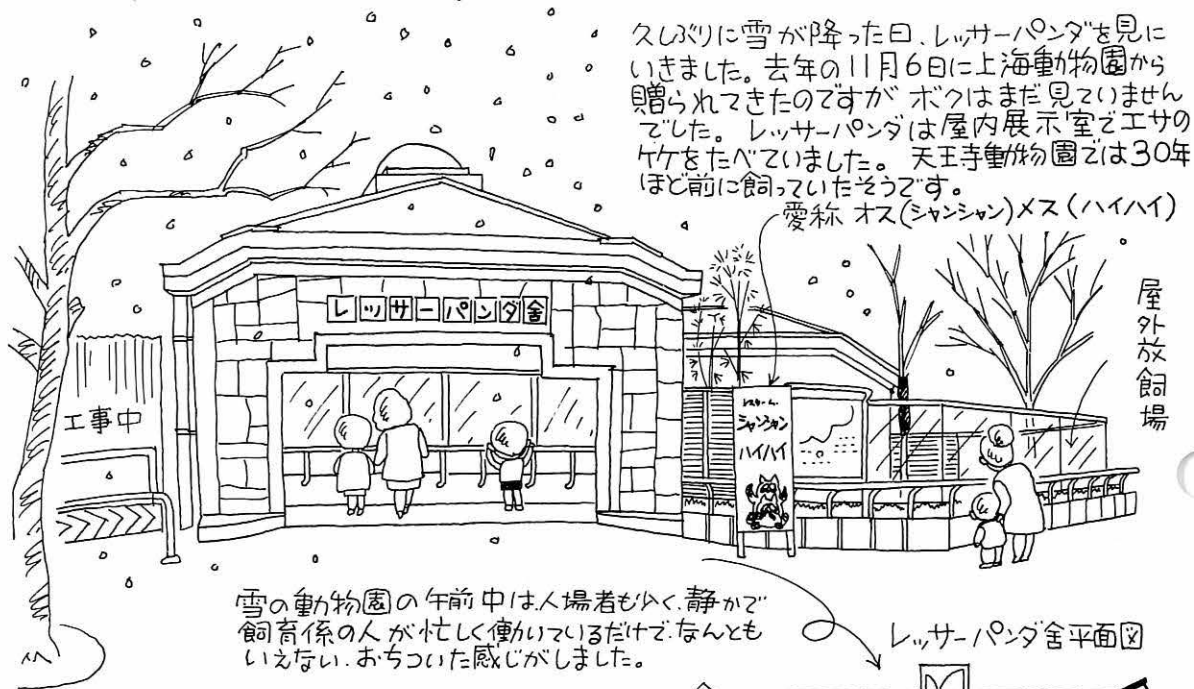 久しぶりに雪が降った日、レッサーパンダを見に
いきました。去年の11月6日に上海動物園から
贈られてきたのですが ボクはまだ見ていません
でした。 レッサーパンダは屋内展示室でエサの
ケケをたべていました。 天王寺動物園では30年
ほど前に飼っていたそうです。
愛称 オス(シャンシャン)メス(ハイハイ)
レッサーパンダ舎
屋外放飼場
工事中
シャンシャン
ハイハイ
雪の動物園の午前中は、人場者も少く、静かで
飼育係の人が忙しく働いているだけで、なんとも
いえない、おちついた感じがしました。
レッサーパンダ舎平面図